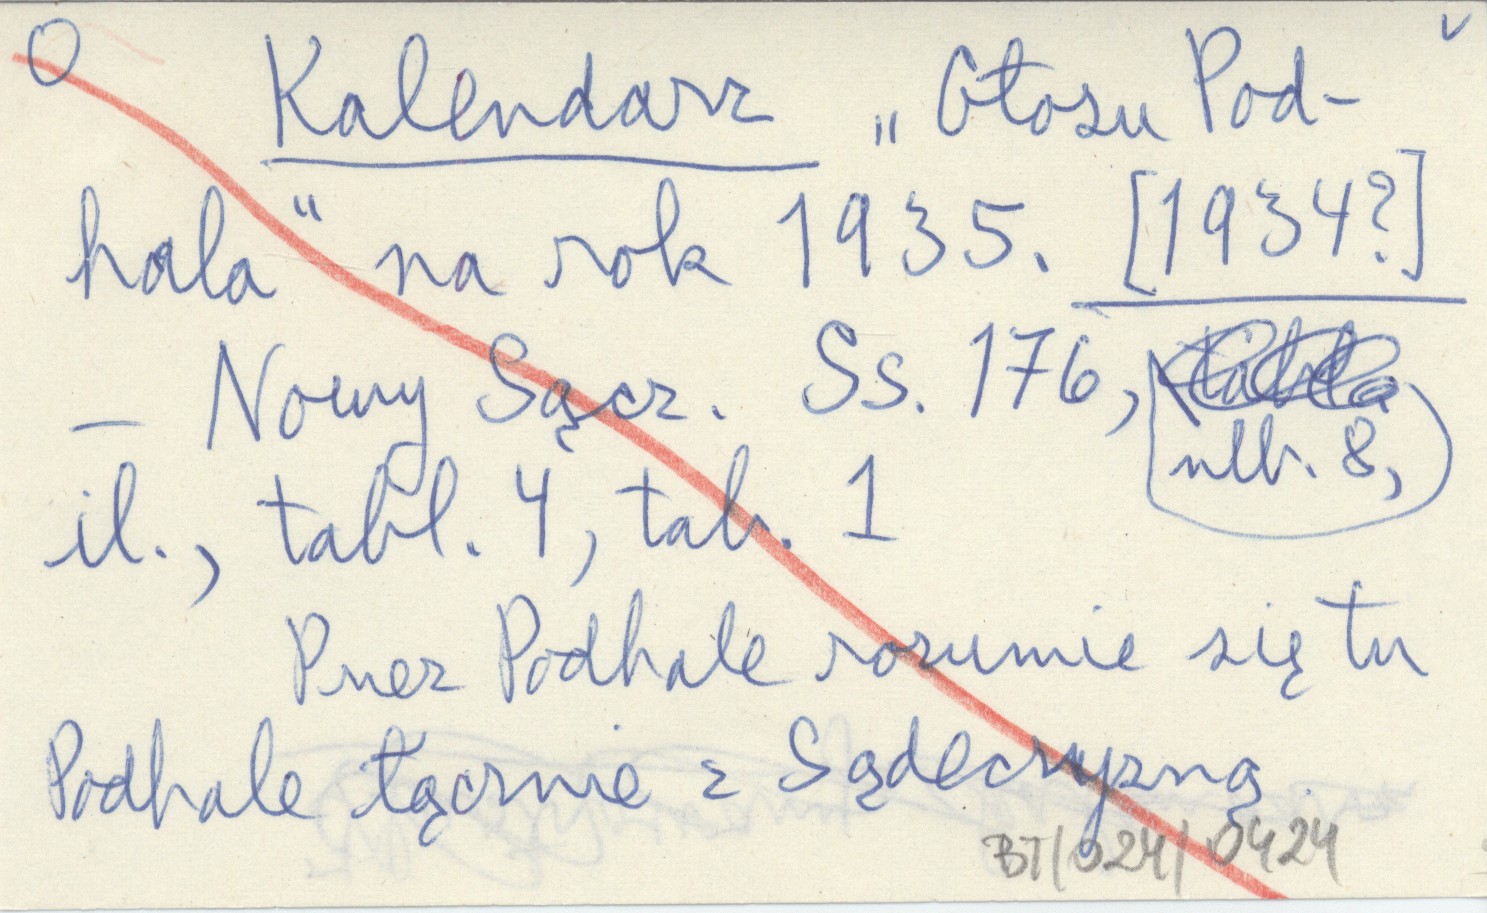 O
Kalendarz „Głosu Pod-
hala“ na rok 1935. [1934?]
– Nowy Sącz. Ss. 176,
nlb. 8,
il., tabl. 4, tab. 1
Przez Podhale rozumie się tu
Podhale łącznie z Sądeczyzną.
BT/024/0424